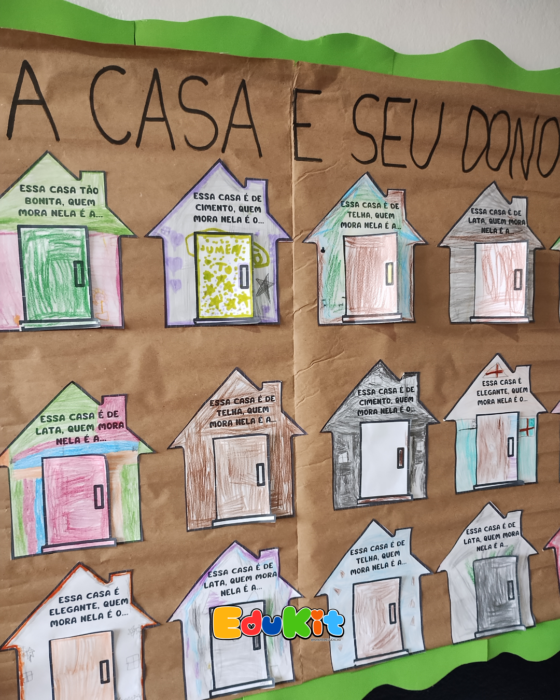 A CASA E SEU DONO
ESSA CASA TÃO
BONITA, QUEM
MORA NELA É A...
ESSA CASA É DE
CIMENTO, QUEM
MORA NELA É O...
ESSA CASA É DE
TELHA, QUEM
MORA NELA É A...
ESSA CASA É DE
LATA, QUEM MORA
NELA É A...
ESSA CASA É DE
LATA, QUEM MORA
NELA É A...
ESSA CASA É DE
TELHA, QUEM
MORA NELA É A...
ESSA CASA É DE
CIMENTO, QUEM
MORA NELA É O...
ESSA CASA É
ELEGANTE, QUEM
MORA NELA É O...
ESSA CASA É
ELEGANTE, QUEM
MORA NELA É O...
ESSA CASA É DE
LATA, QUEM MORA
NELA É A...
ESSA CASA É DE
TELHA, QUEM
MORA NELA É A...
ESSA CASA É DE
LATA, QUEM MORA
NELA É A...
EduKit